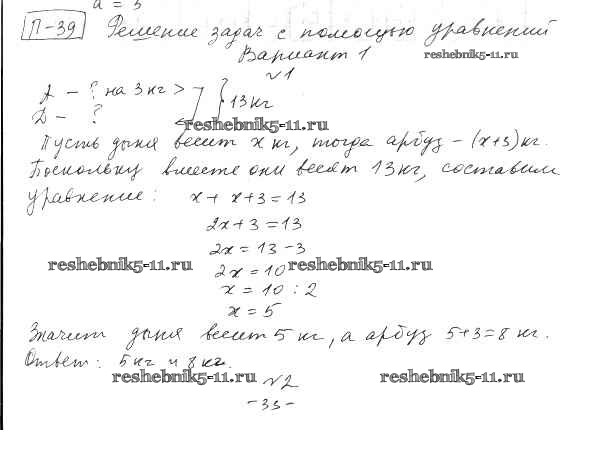 a = 3
П-39 Решение задач с помощью уравнений
Вариант 1 reshebnik5-11.ru
№1
А – ? на 3 кг > } 13 кг
Д – ?
reshebnik5-11.ru
Пусть дыня весит x кг, тогда арбуз – (x+3) кг.
Поскольку вместе они весят 13 кг, составим
уравнение: x + x+3 = 13
2x+3 = 13
2x = 13 –3
reshebnik5-11.ru 2x = 10 reshebnik5-11.ru
x = 10 : 2
x = 5
Значит дыня весит 5 кг, а арбуз 5+3=8 кг.
Ответ: 5 кг и 8 кг.
reshebnik5-11.ru №2 reshebnik5-11.ru
-33-